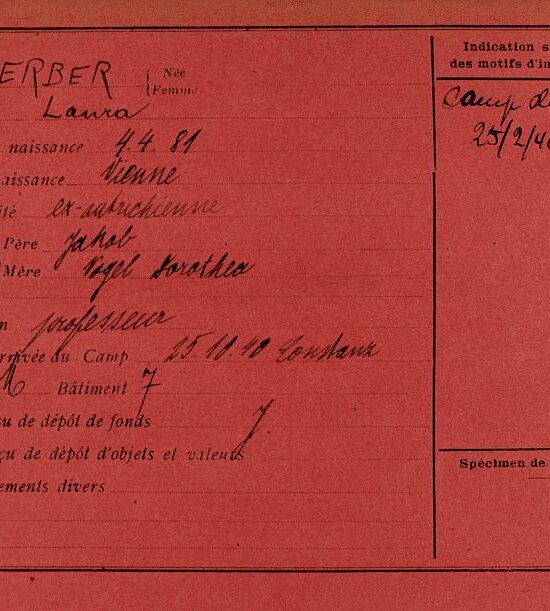 ERBER
Née
Femme
Laura
naissance 4.4.81
aissance Vienne
té ex-autrichienne
Père Jakob
Mère Vogel Dorothea
n professeur
arrivée au Camp 25.10.40 Constanz
M Bâtiment 7
çu de dépôt de fonds
J.
çu de dépôt d'objets et valeurs
ements divers
Indication s
des motifs d'in
Camp de
25/2/4
Spécimen de